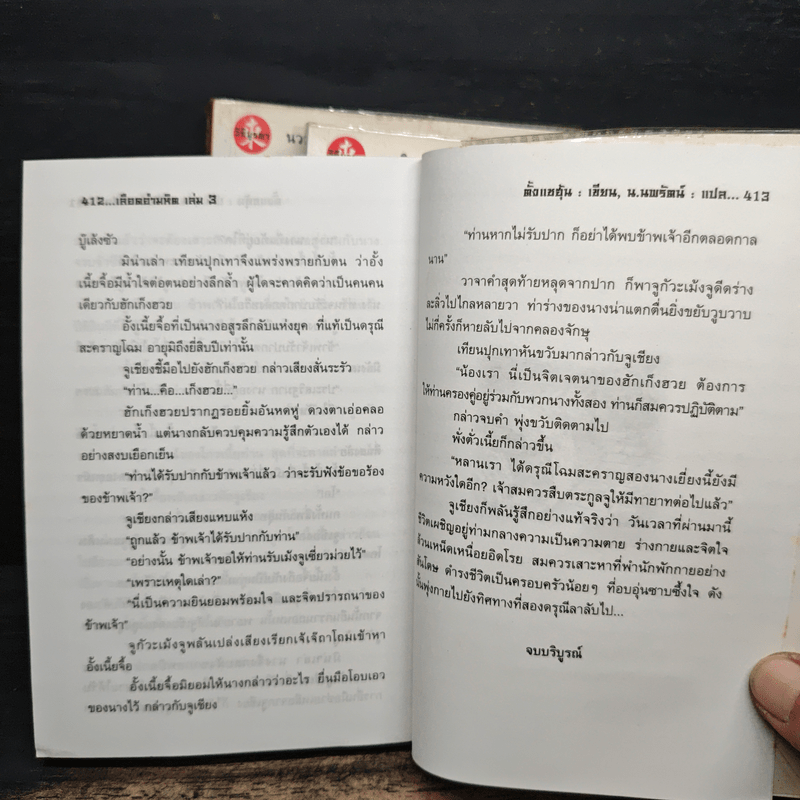 นว
412...เลือดอำมหิต เล่ม 3
บู๊เล้งซัว
มิน่าเล่า เทียนปุกเทาจึงแพร่งพรายกับตน ว่าอั้ง
เนี้ยจื้อมีน้ำใจต่อตนอย่างลึกล้ำ ผู้ใดจะคาดคิดว่าเป็นคนคน
เดียวกับฮักเก็งฮวย
อั้งเนี้ยจื้อที่เป็นนางอสูรลึกลับแห่งยุค ที่แท้เป็นดรุณี
สะคราญโฉม อายุมิถึงยี่สิบปีเท่านั้น
จูเซียงชี้มือไปยังฮักเก็งฮวย กล่าวเสียงสั่นระรัว
“ท่าน...คือ...เก็งฮวย...”
ฮักเก็งฮวยปรากฏรอยยิ้มอันหดหู่ ดวงตาเอ่อคลอ
ด้วยหยาดน้ำ แต่นางกลับควบคุมความรู้สึกตัวเองได้ กล่าว
อย่างสงบเยือกเย็น
“ท่านได้รับปากกับข้าพเจ้าแล้ว ว่าจะรับฟังข้อขอร้อง
ของข้าพเจ้า?”
จูเซียงกล่าวเสียงแหบแห้ง
“ถูกแล้ว ข้าพเจ้าได้รับปากกับท่าน”
“อย่างนั้น ข้าพเจ้าขอให้ท่านรับเม้งจูเซี่ยวม่วยไว้”
“เพราะเหตุใดเล่า?”
“นี่เป็นความยินยอมพร้อมใจ และจิตปรารถนาของ
ข้าพเจ้า”
จูกัวะเม้งจูพลันเปล่งเสียงเรียกเจ้เจ๊ถาโถมเข้าหา
อั้งเนี้ยจื้อ
อั้งเนี้ยจื้อมิยอมให้นางกล่าวว่าอะไร ยื่นมือโอบเอว
ของนางไว้ กล่าวกับจูเซียง
ตั้งแชฮุ้น : เขียน, น.นพรัตน์ : แปล... 413
“ท่านหากไม่รับปาก ก็อย่าได้พบข้าพเจ้าอีกตลอดกาล
นาน”
วาจาคำสุดท้ายหลุดจากปาก ก็พาจูกัวะเม้งจูดีดร่าง
ละลิ่วไปไกลหลายวา ท่าร่างของนางน่าแตกตื่นยิ่งขยับวูบวาบ
ไม่กี่ครั้งก็หายลับไปจากคลองจักษุ
เทียนปุกเทาหันขวับมากล่าวกับจูเซียง
“น้องเรา นี่เป็นจิตเจตนาของฮักเก็งฮวย ต้องการ
ให้ท่านครองคู่อยู่ร่วมกับพวกนางทั้งสอง ท่านก็สมควรปฏิบัติตาม”
กล่าวจบคำ พุ่งขวับติดตามไป
พั่งตั่วเนี้ยก็กล่าวขึ้น
“หลานเรา ได้ดรุณีโฉมสะคราญสองนางเยี่ยงนี้ยังมี
ความหวังใดอีก? เจ้าสมควรสืบตระกูลจูให้มีทายาทต่อไปแล้ว”
จูเซียงก็พลันรู้สึกอย่างแท้จริงว่า วันเวลาที่ผ่านมานี้
ชีวิตเผชิญอยู่ท่ามกลางความเป็นความตาย ร่างกายและจิตใจ
ล้วนเหน็ดเหนื่อยอิดโรย สมควรเสาะหาที่พำนักพักกายอย่าง
สันโดษ ดำรงชีวิตเป็นครอบครัวน้อยๆ ที่อบอุ่นซาบซึ้งใจ ดัง
นั้นพุ่งกายไปยังทิศทางที่สองดรุณีลาลับไป...
จบบริบูรณ์